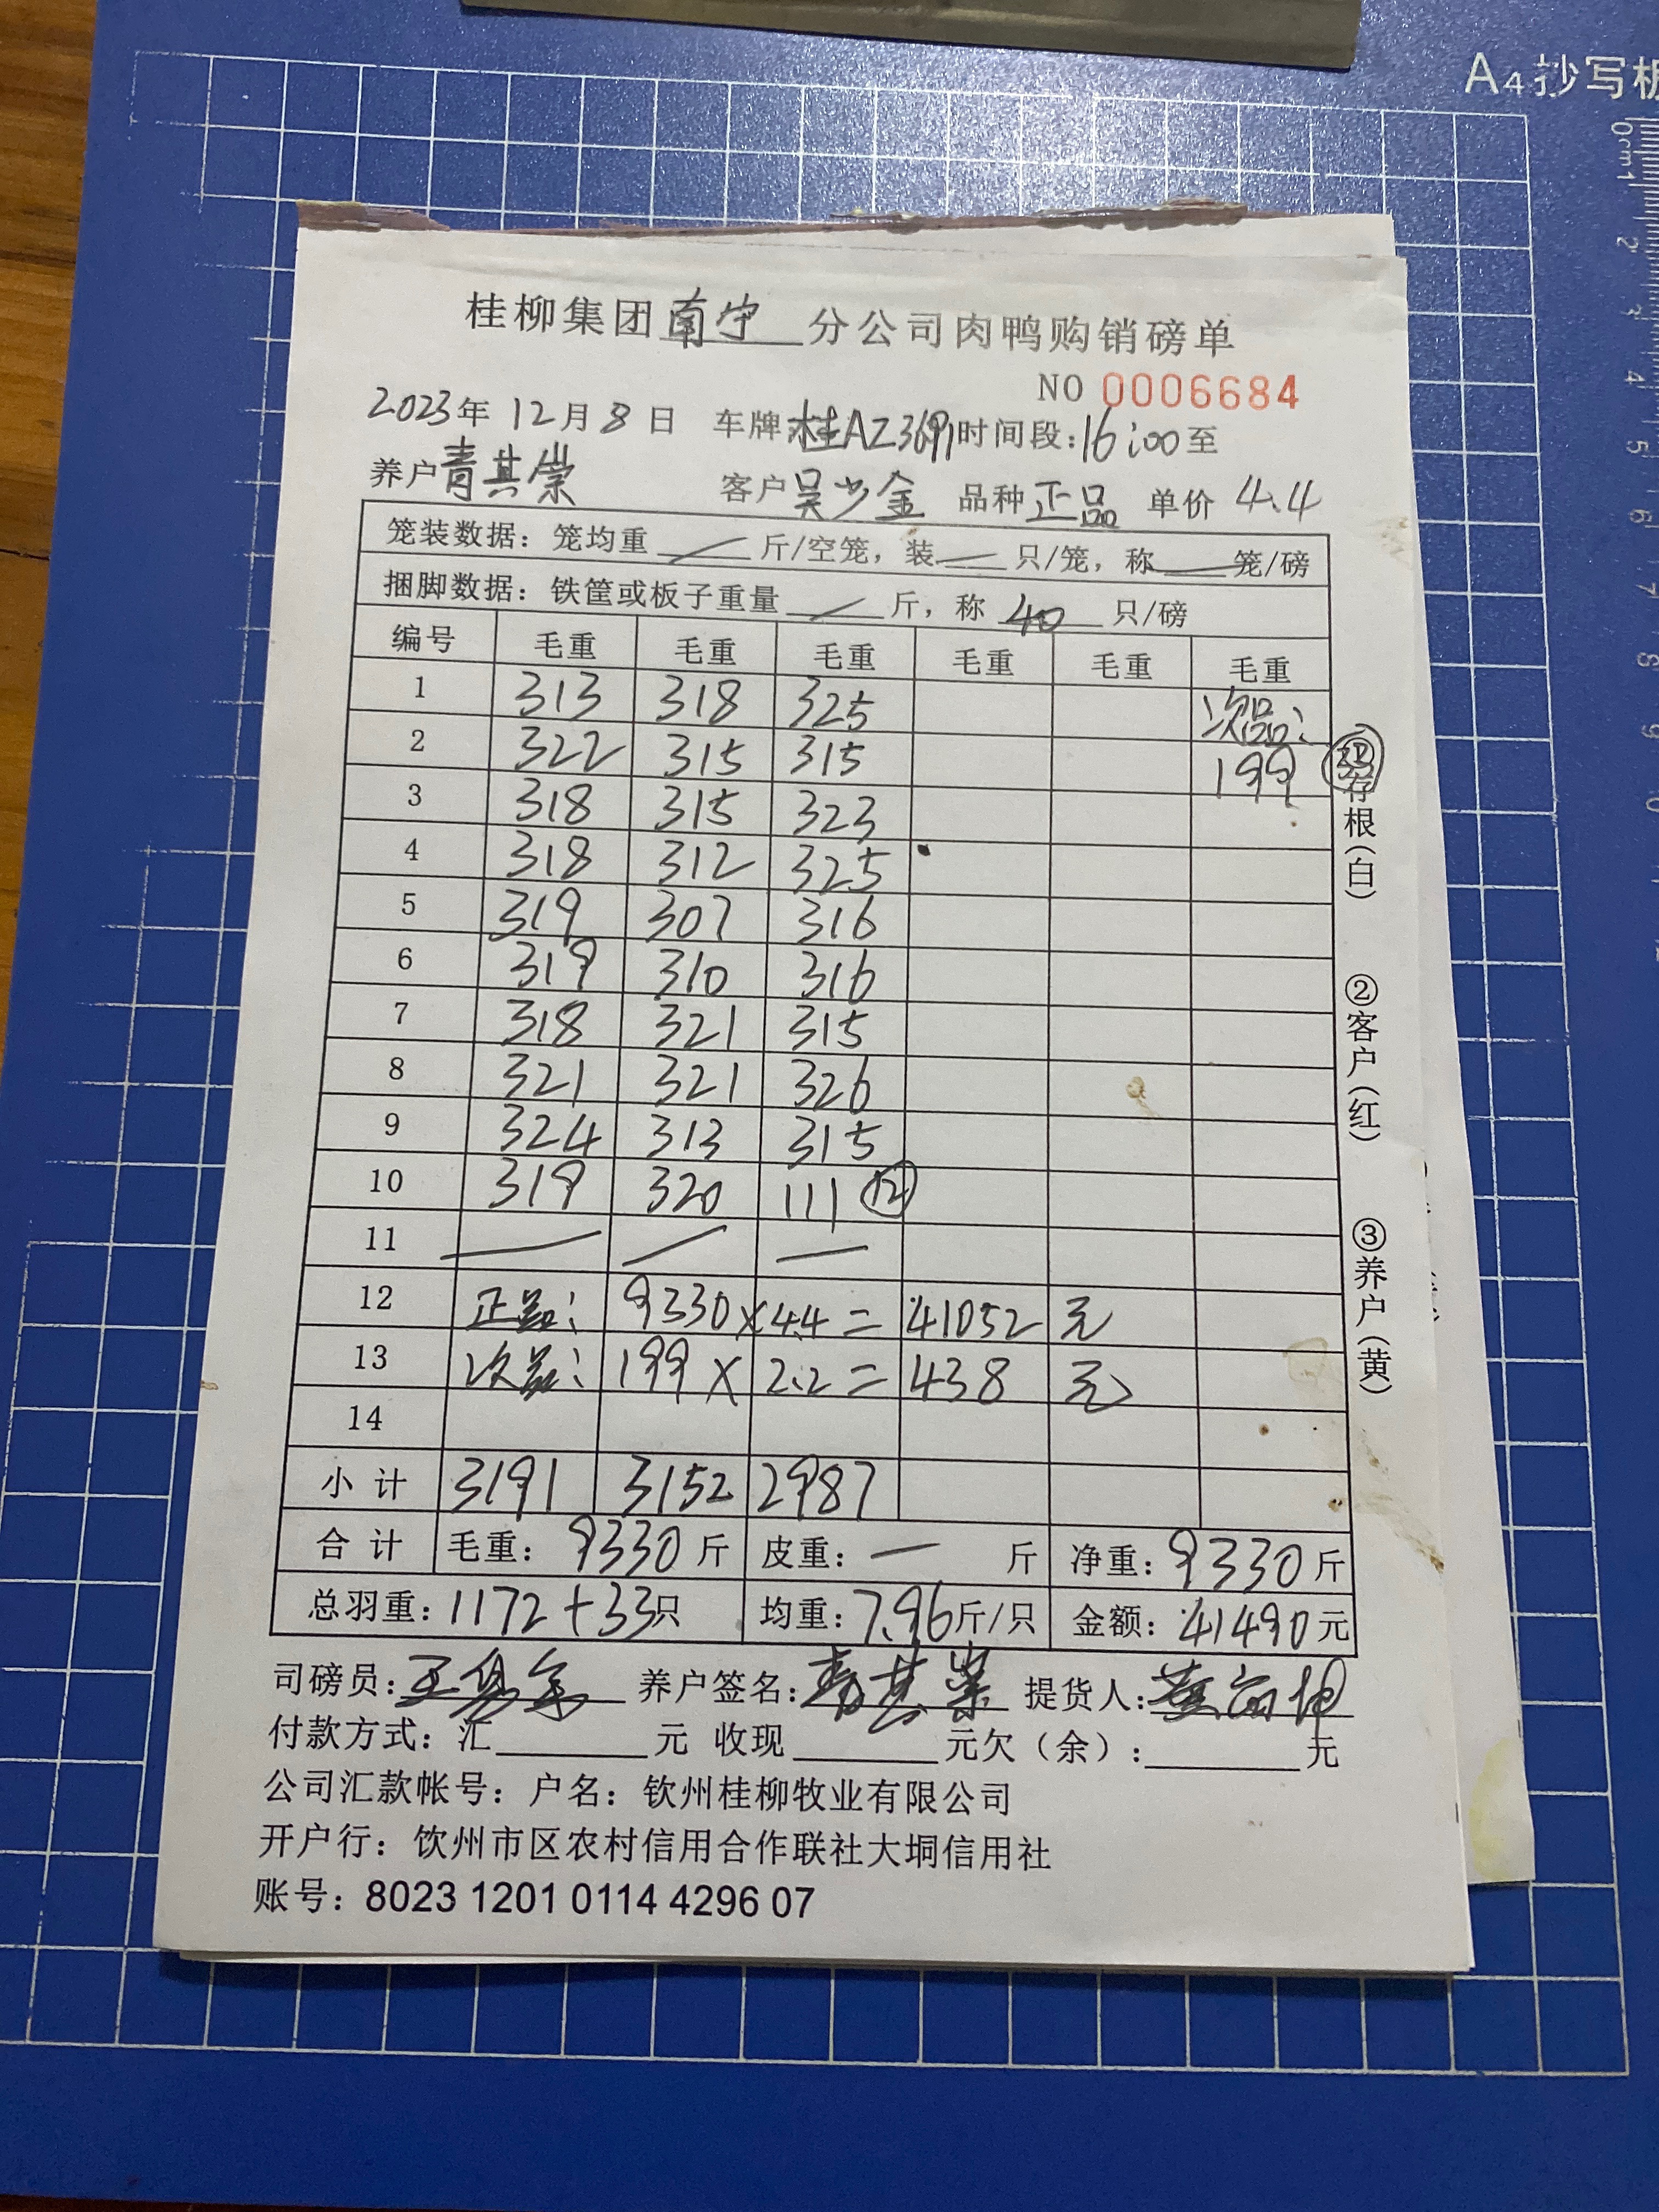 A4抄写板
0cm1
2
3
4
5
6
7
8
9
10
桂柳集团南宁分公司肉鸭购销磅单
NO 0006684
2023年 12月 8日 车牌:桂AZ3691 时间段:16:00至
养户青其崇 客户吴少金 品种正品 单价 4.4
笼装数据：笼均重 / 斤/空笼，装 — 只/笼，称 — 笼/磅
捆脚数据：铁筐或板子重量 / 斤，称 40 只/磅
编号 毛重 毛重 毛重 毛重 毛重 毛重
1 313 318 325 次品:
2 322 315 315 199
3 318 315 323
4 318 312 325
5 319 307 316
6 319 310 316
7 318 321 315
8 321 321 326
9 324 313 315
10 319 320 111 ⑫
11 — — —
12 正品: 9330 × 4.4 = 41052 元
13 次品: 199 × 2.2 = 438 元
14
小计 3191 3152 2987
合计 毛重: 9330 斤 皮重: — 斤 净重: 9330 斤
总羽重: 1172+33只 均重: 7.96斤/只 金额: 41490元
存根(白)
②客户(红)
③养户(黄)
司磅员: 养户签名:青其崇 提货人:
付款方式：汇 元 收现 元欠（余）: 元
公司汇款帐号：户名：钦州桂柳牧业有限公司
开户行：饮州市区农村信用合作联社大垌信用社
账号：8023 1201 0114 4296 07